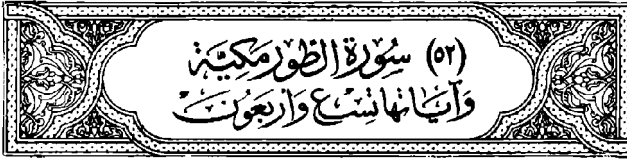 (٥٢) سُورَة الطُّور مَكِيَّة
وَآيَاتهَا تِسْع وَأَربَعُونَ